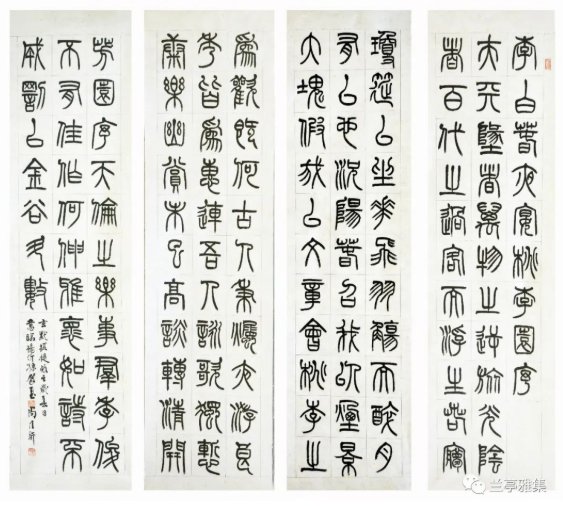 李白春夜宴桃李園序
夫天墬者萬物之逆旅光陰
者百代之過客而浮生若夢
瓊筵以坐花飛羽觴而醉月
有以也況陽春召我以煙景
大塊假我以文章會桃李之
為歡幾何古人秉燭夜游良
秀皆為惠連吾人詠歌獨慚
康樂幽賞未已高談轉清開
芳園序天倫之樂事群季俊
不有佳作何伸雅懷如詩不
成罰以金谷酒數
兰亭雅集